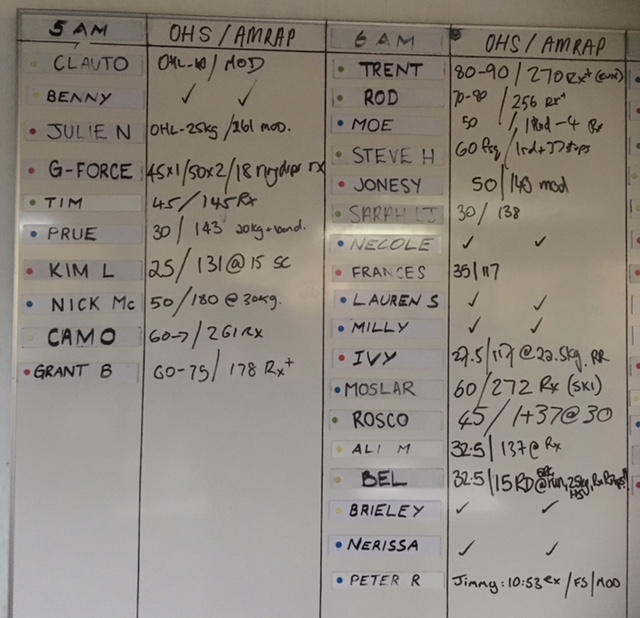 5 AM OHS/AMRAP
CLAUTO OHL-40/MOD
BENNY ✓ ✓
JULIE N OHL-25kg/261 MOD.
G-FORCE 45x1/50x2/18 rx
TIM 45/145 Rx
PRUE 30/143 20kg+band.
KIM L 25/131@15 SC
NICK Mc 50/180@30kg.
CAMO 60→/261 RX
GRANT B 60-75/178 Rx+
6 AM OHS/AMRAP
TRENT 80-90/270 Rx+
ROD 70-80/256 Rx+
MOE 50/1Rd-4 Rx
STEVE H 60 fsq/1rd+37
JONESY 50/140 mod
SARAH 30/138
NECOLE ✓ ✓
FRANCES 35/117
LAUREN S ✓ ✓
MILLY ✓ ✓
IVY 27.5/117@22.5kg. RR
MOSLAR 60/272 Rx (SKI)
ROSCO 45/1+37@30
ALI M 32.5/137@Rx
BEL 32.5/15RD@run, 25kg, HSU, Rx
BRIELEY ✓ ✓
NERISSA ✓ ✓
PETER R Jimmy: 10:53 Rx/FS/MOD